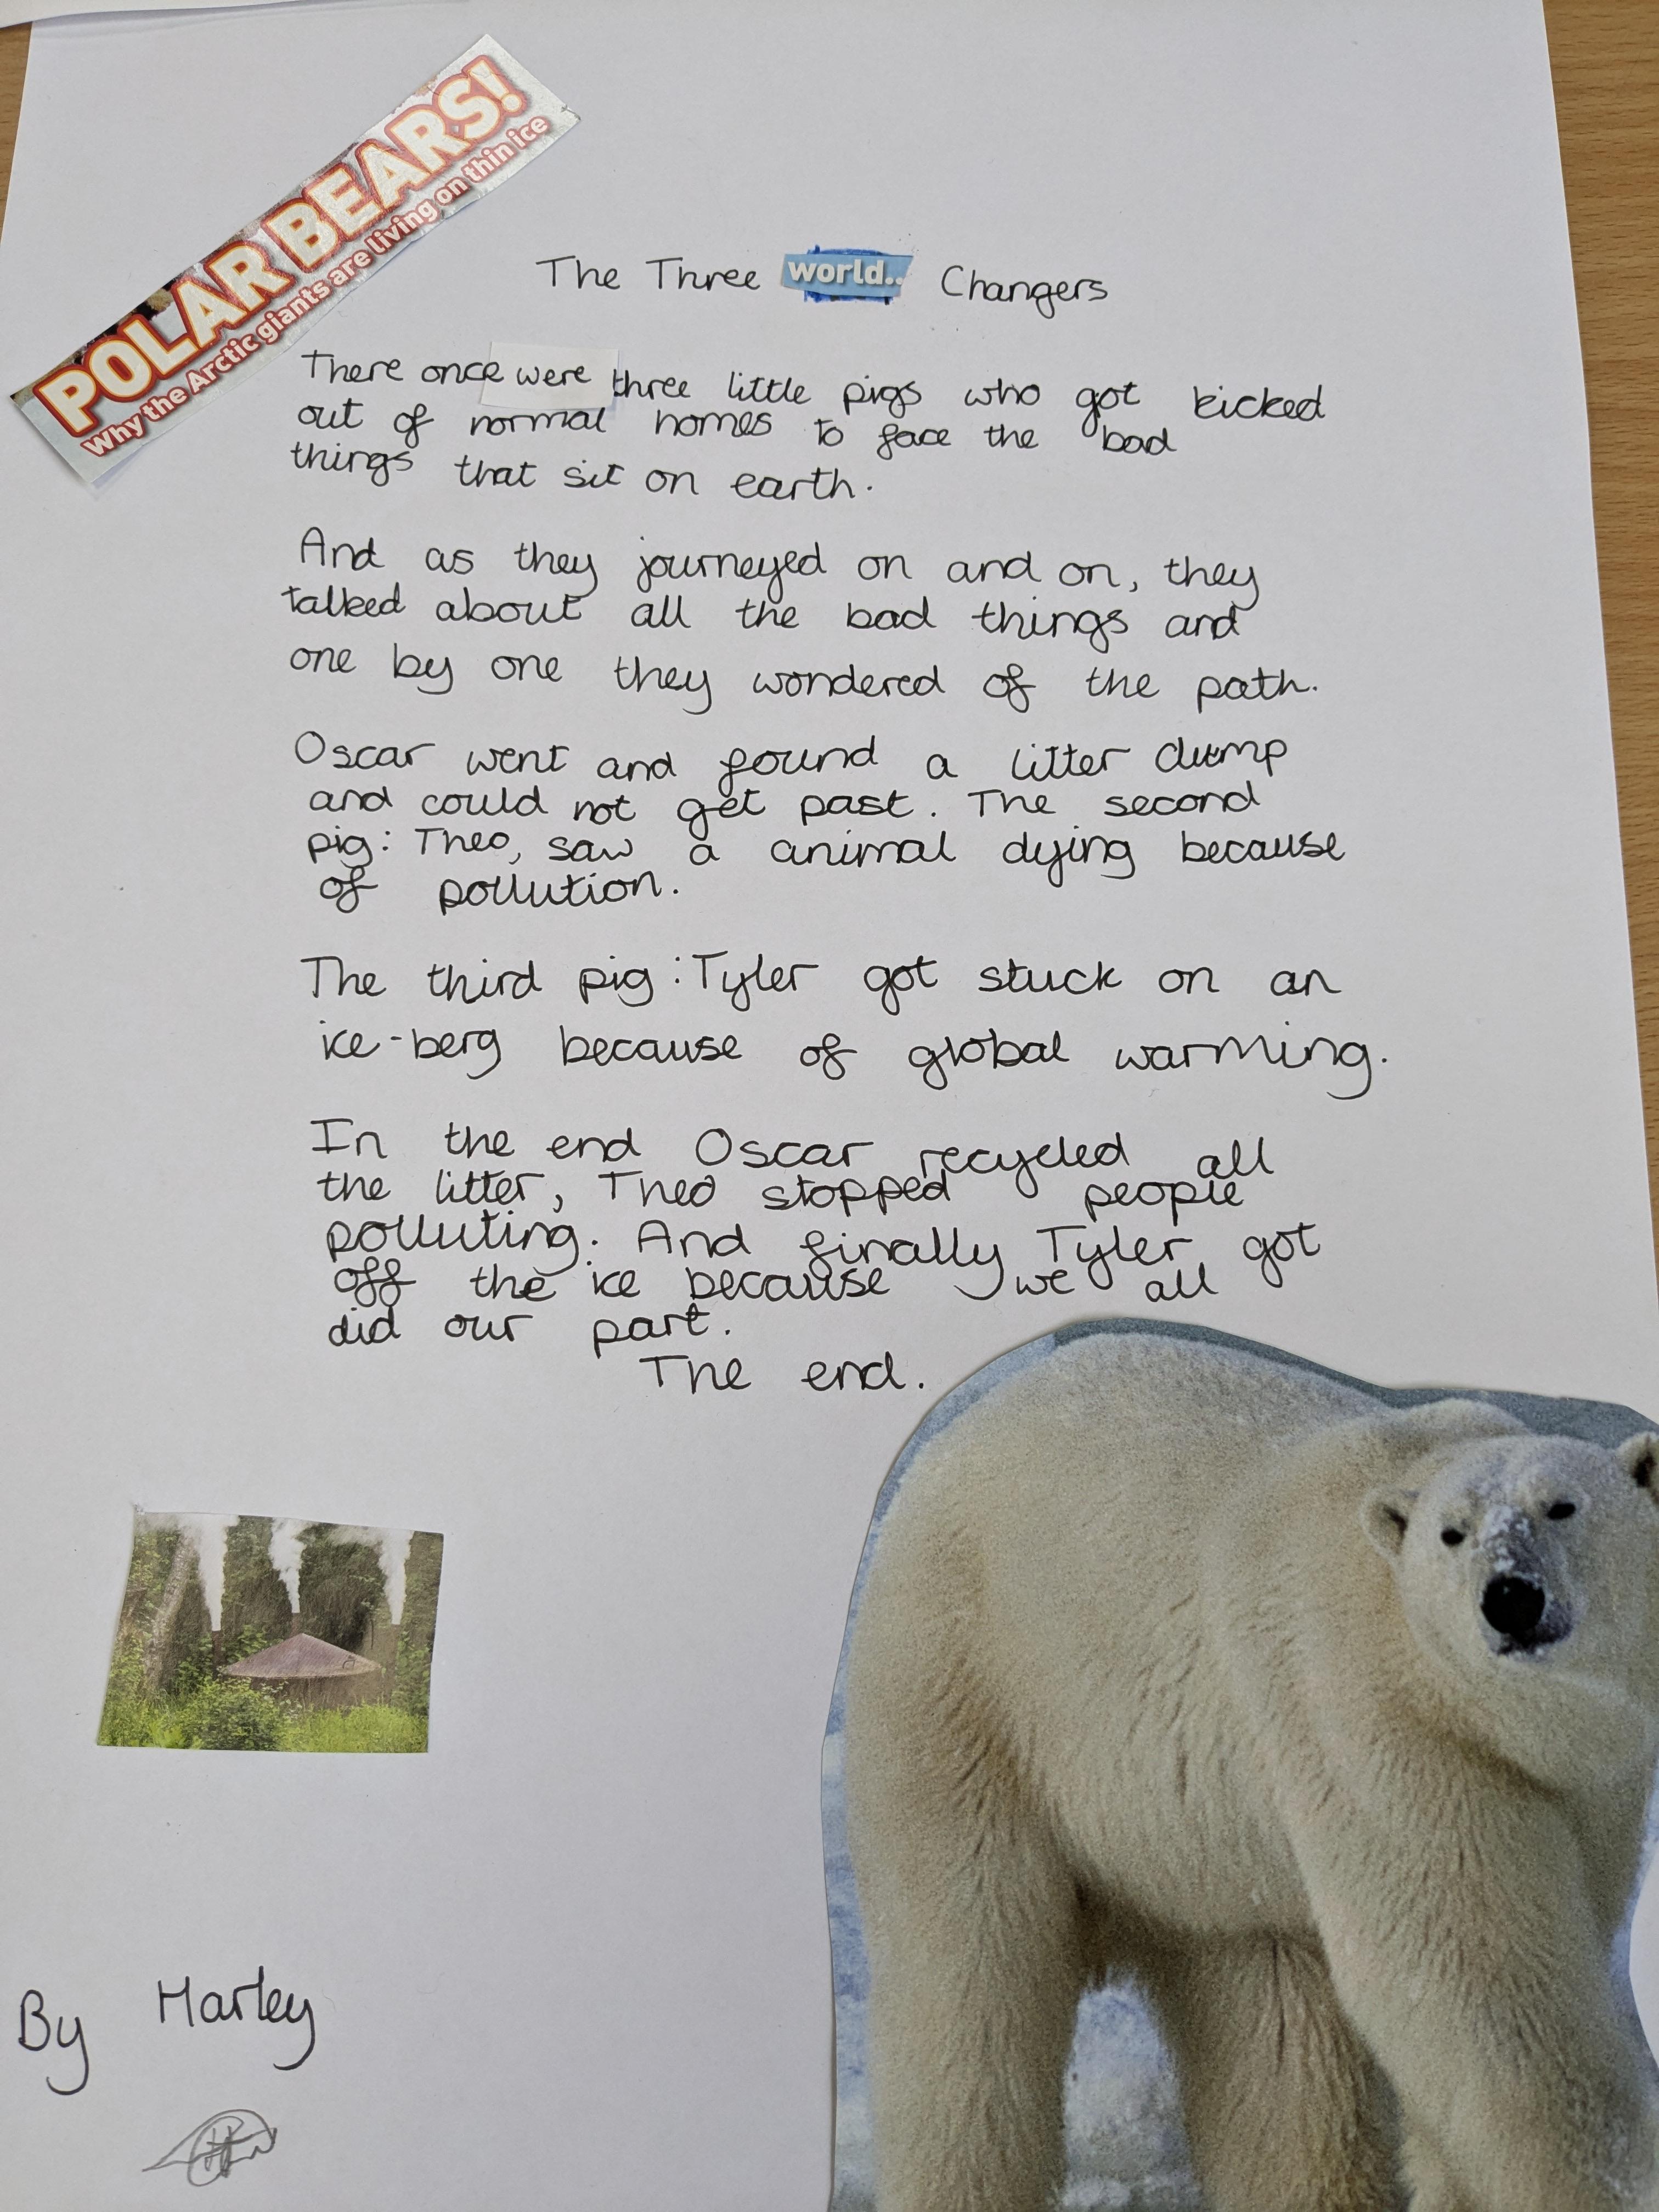 POLAR BEARS!
Why the Arctic giants are living on thin ice
The Three world.. Changers
There once were three little pigs who got kicked
out of normal homes to face the bad
things that sit on earth.
And as they journeyed on and on, they
talked about all the bad things and
one by one they wondered of the path.
Oscar went and found a litter dump
and could not get past. The second
pig: Theo, saw a animal dying because
of pollution.
The third pig: Tyler got stuck on an
ice-berg because of global warming.
In the end Oscar recycled all
the litter, Theo stopped people
polluting. And finally Tyler got
off the ice because we all
did our part.
The end.
By Harley